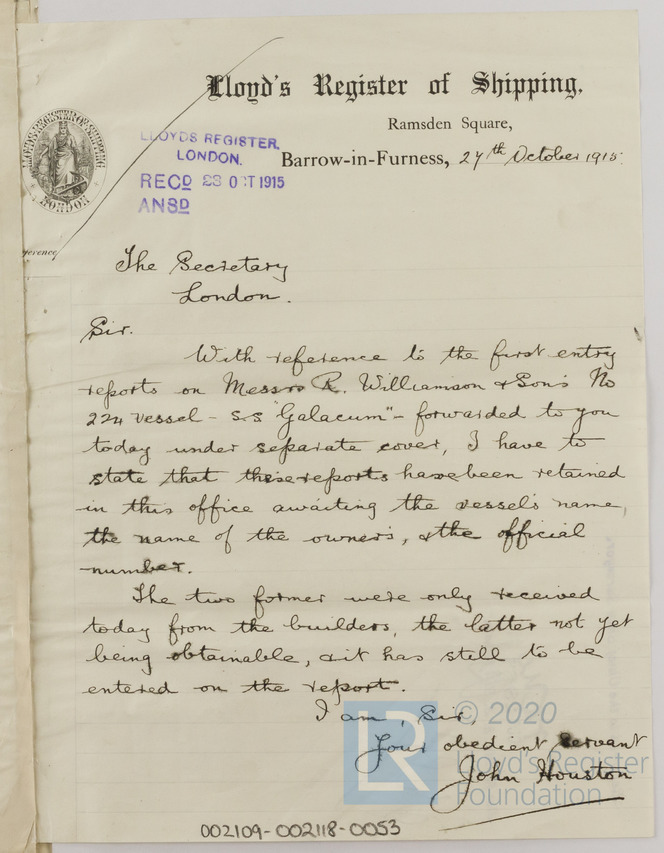 Lloyd's Register of Shipping.
Ramsden Square,
Barrow-in-Furness, 27th October 1915.
LLOYDS REGISTER.
LONDON.
RECD 28 OCT 1915
ANSD
LONDON
ference
The Secretary
London.
Sir.
With reference to the first entry
reports on Messrs R. Williamson & Son's No
224 vessel - S.S "Galacum" - forwarded to you
today under separate cover, I have to
state that these reports have been retained
in this office awaiting the vessel's name,
the name of the owner's, & the official
number.
The two former were only received
today from the builders, the latter not yet
being obtainable, & it has still to be
entered on the report.
I am, Sir,
Your obedient servant
John Houston
LR
© 2020
Lloyd's Register
Foundation
002109-002118-0053